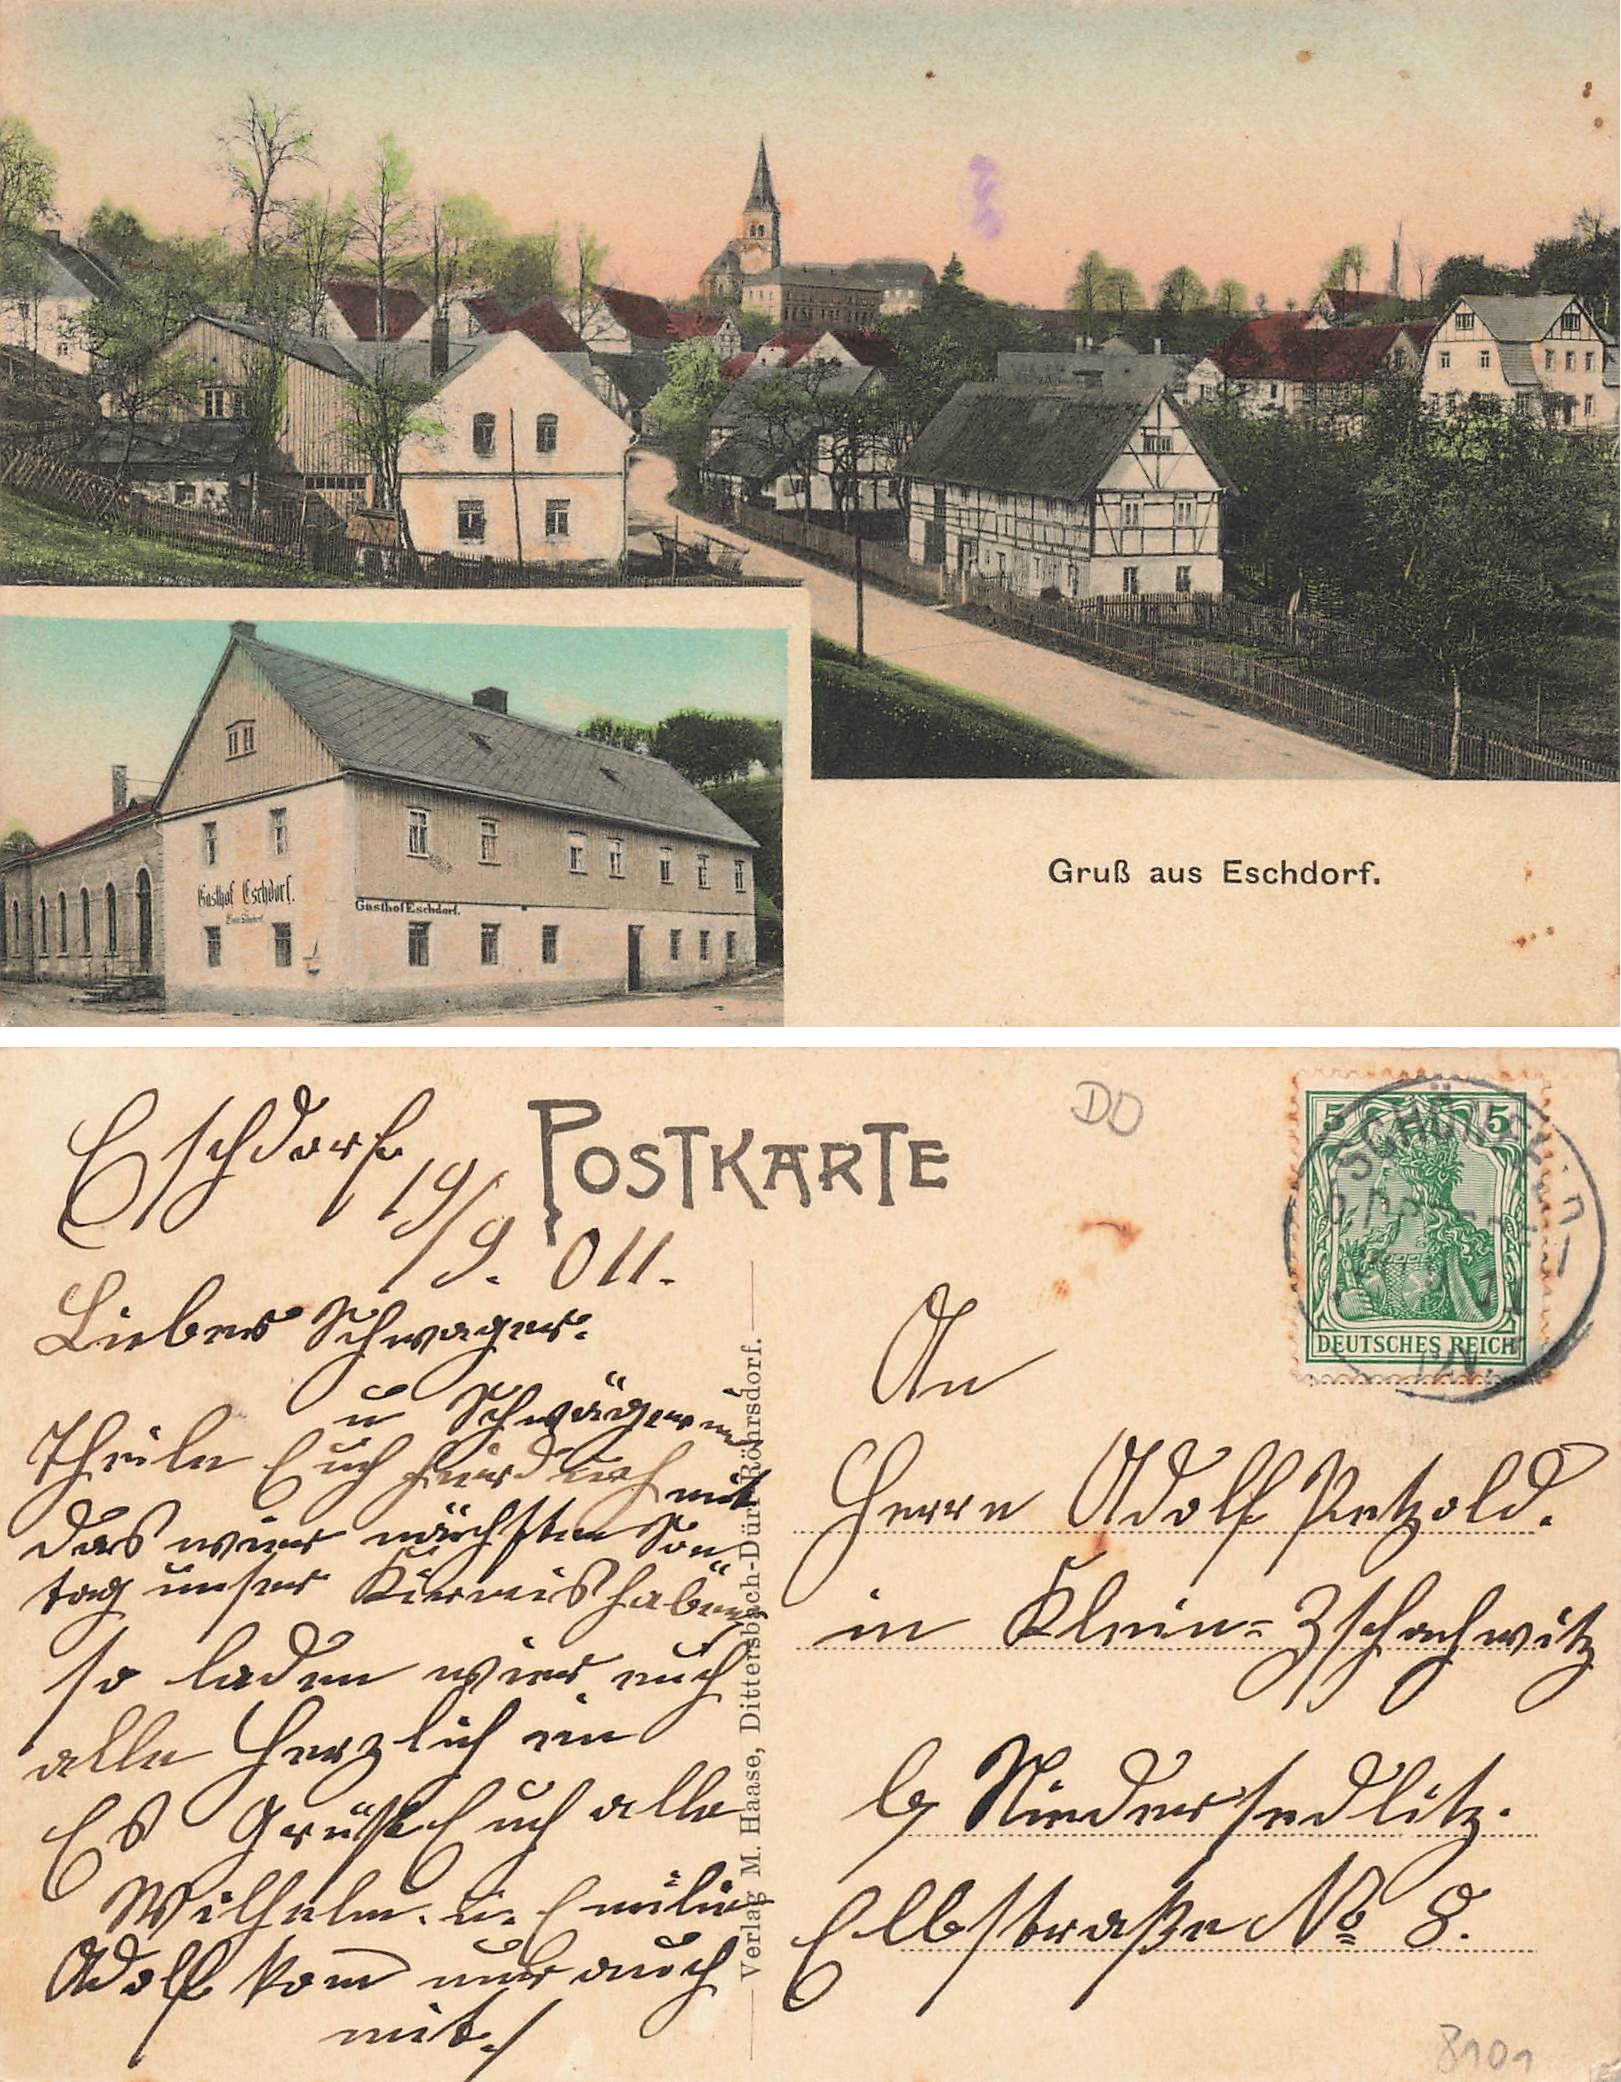 Gasthof Eschdorf.
Gasthof Eschdorf.
Gruß aus Eschdorf.
POSTKARTE
DD
5 5
DEUTSCHES REICH
Eschdorf.
19/9. 011.
Lieber Schwager.
u Schwägerin
Theile Euch hierdurch mit
das wier nächsten Son
tag unser Kirmis haben
so laden wier euch
alle Herzlich ein
Es Grüßt Euch alle
Wilhelm. u. Emilie
Adolf kom nur auch
mit./
Verlag M. Haase, Dittersbach-Dürr-Röhrsdorf.
An
Herrn Adolf Petzold.
in Klein-Zschachwitz
b/ Niedersedlitz.
Elbstraße No 8.
8101